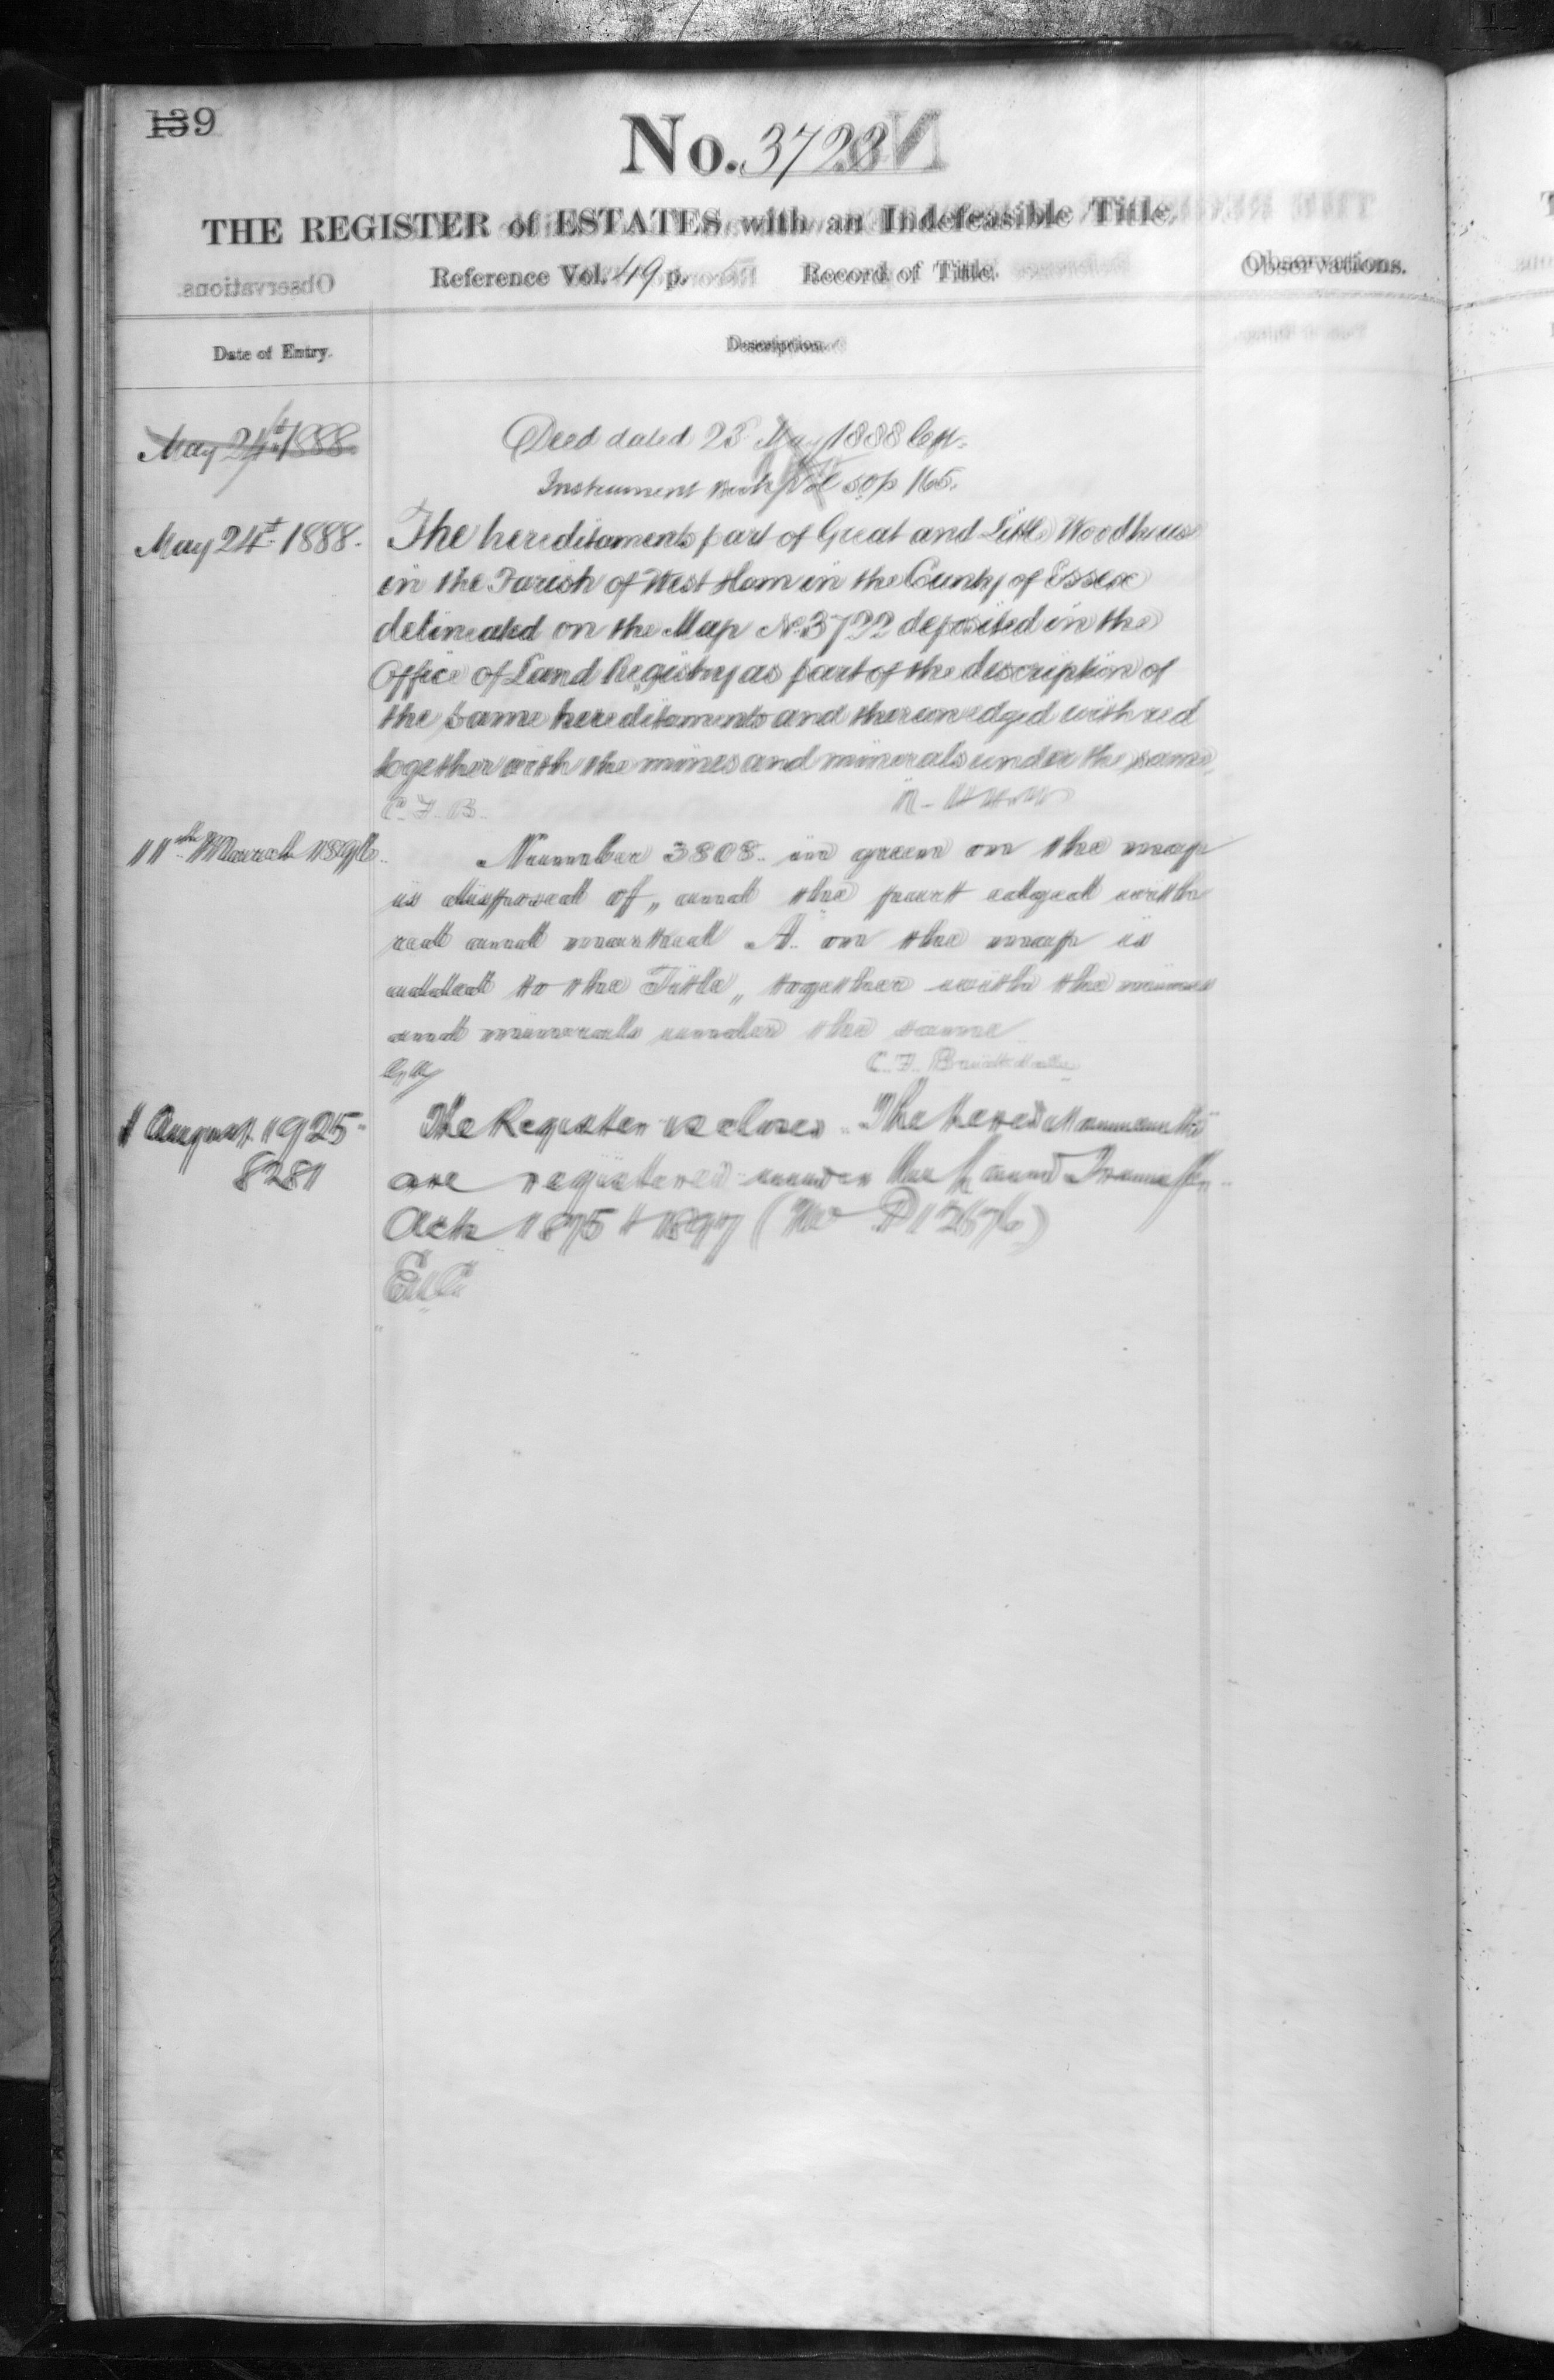 139
No. 3722
THE REGISTER of ESTATES with an Indefeasible Title.
Reference Vol. 49 p. Record of Title.
Observations.
Date of Entry.
Description.
May 24th 1888
Deed dated 23 May 1888 Cop.
Instrument Book Vol 50 p 165.
May 24th 1888. The hereditaments part of Great and Little Woodhouse
in the Parish of West Ham in the County of Essex
delineated on the Map No. 3722 deposited in the
Office of Land Registry as part of the description of
the same hereditaments and thereon edged with red
together with the mines and minerals under the same.
C. F. B.
11th March 1896 Number 3808 in green on the map
is disposed of, and the part edged with
red and marked A. on the map is
added to the Title, together with the mines
and minerals under the same
C. F. Brickdale
1 August 1925 The Register is closed. The hereditaments
8281 are registered under the Land Transfer
Acts 1875 & 1897 (No P12676)